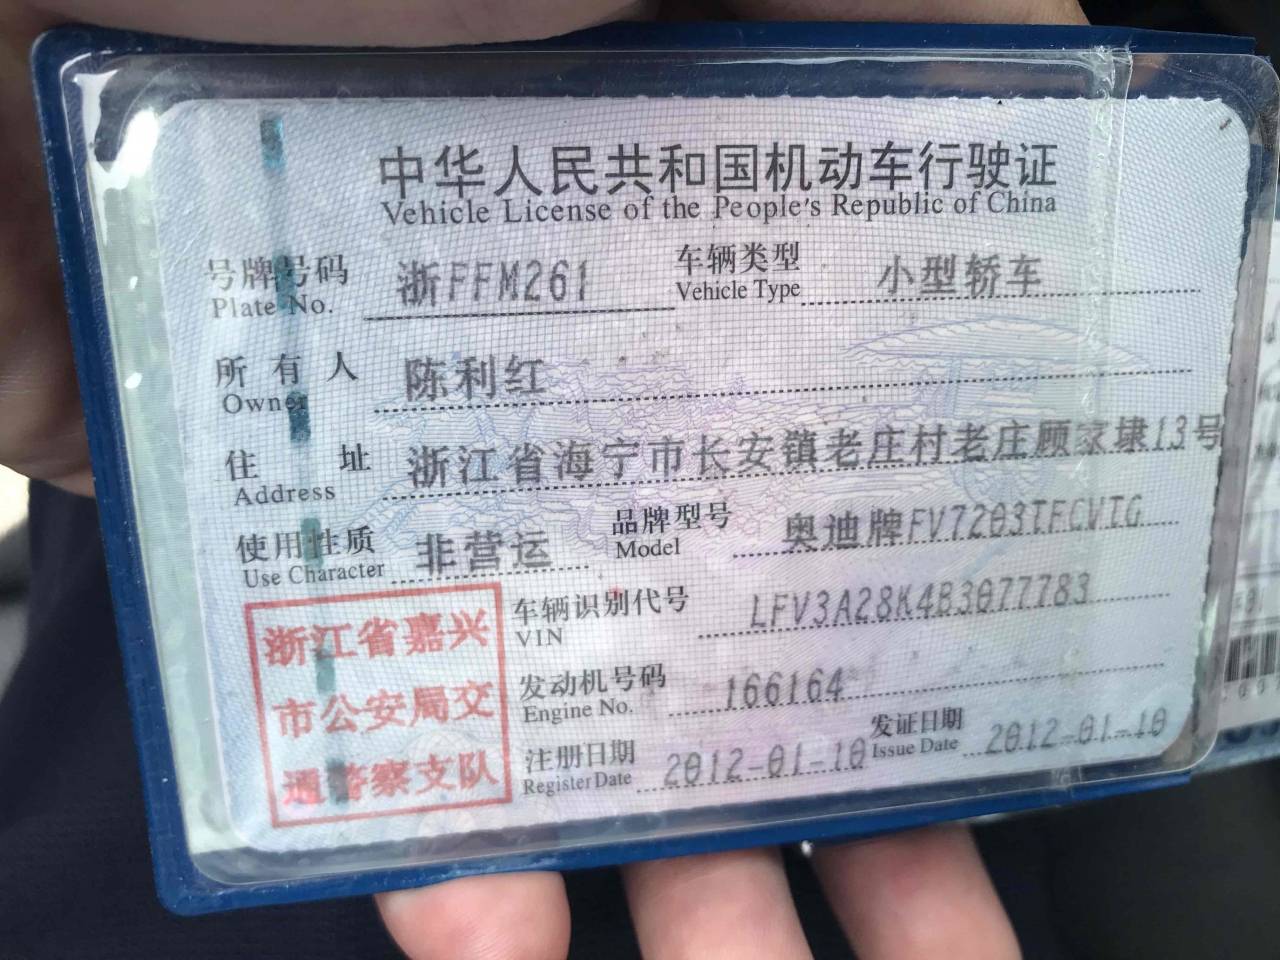 中华人民共和国机动车行驶证
Vehicle License of the People's Republic of China
号牌号码 浙FFM261 车辆类型 小型轿车
Plate No. Vehicle Type
所有人 陈利红
Owner
住址 浙江省海宁市长安镇老庄村老庄顾家埭13号
Address
使用性质 非营运 品牌型号 奥迪牌FV7203TFCVTG
Use Character Model
车辆识别代号 LFV3A28K4B3077783
VIN
发动机号码 166164
Engine No.
注册日期 2012-01-10 发证日期 2012-01-10
Register Date Issue Date
浙江省嘉兴
市公安局交
通警察支队